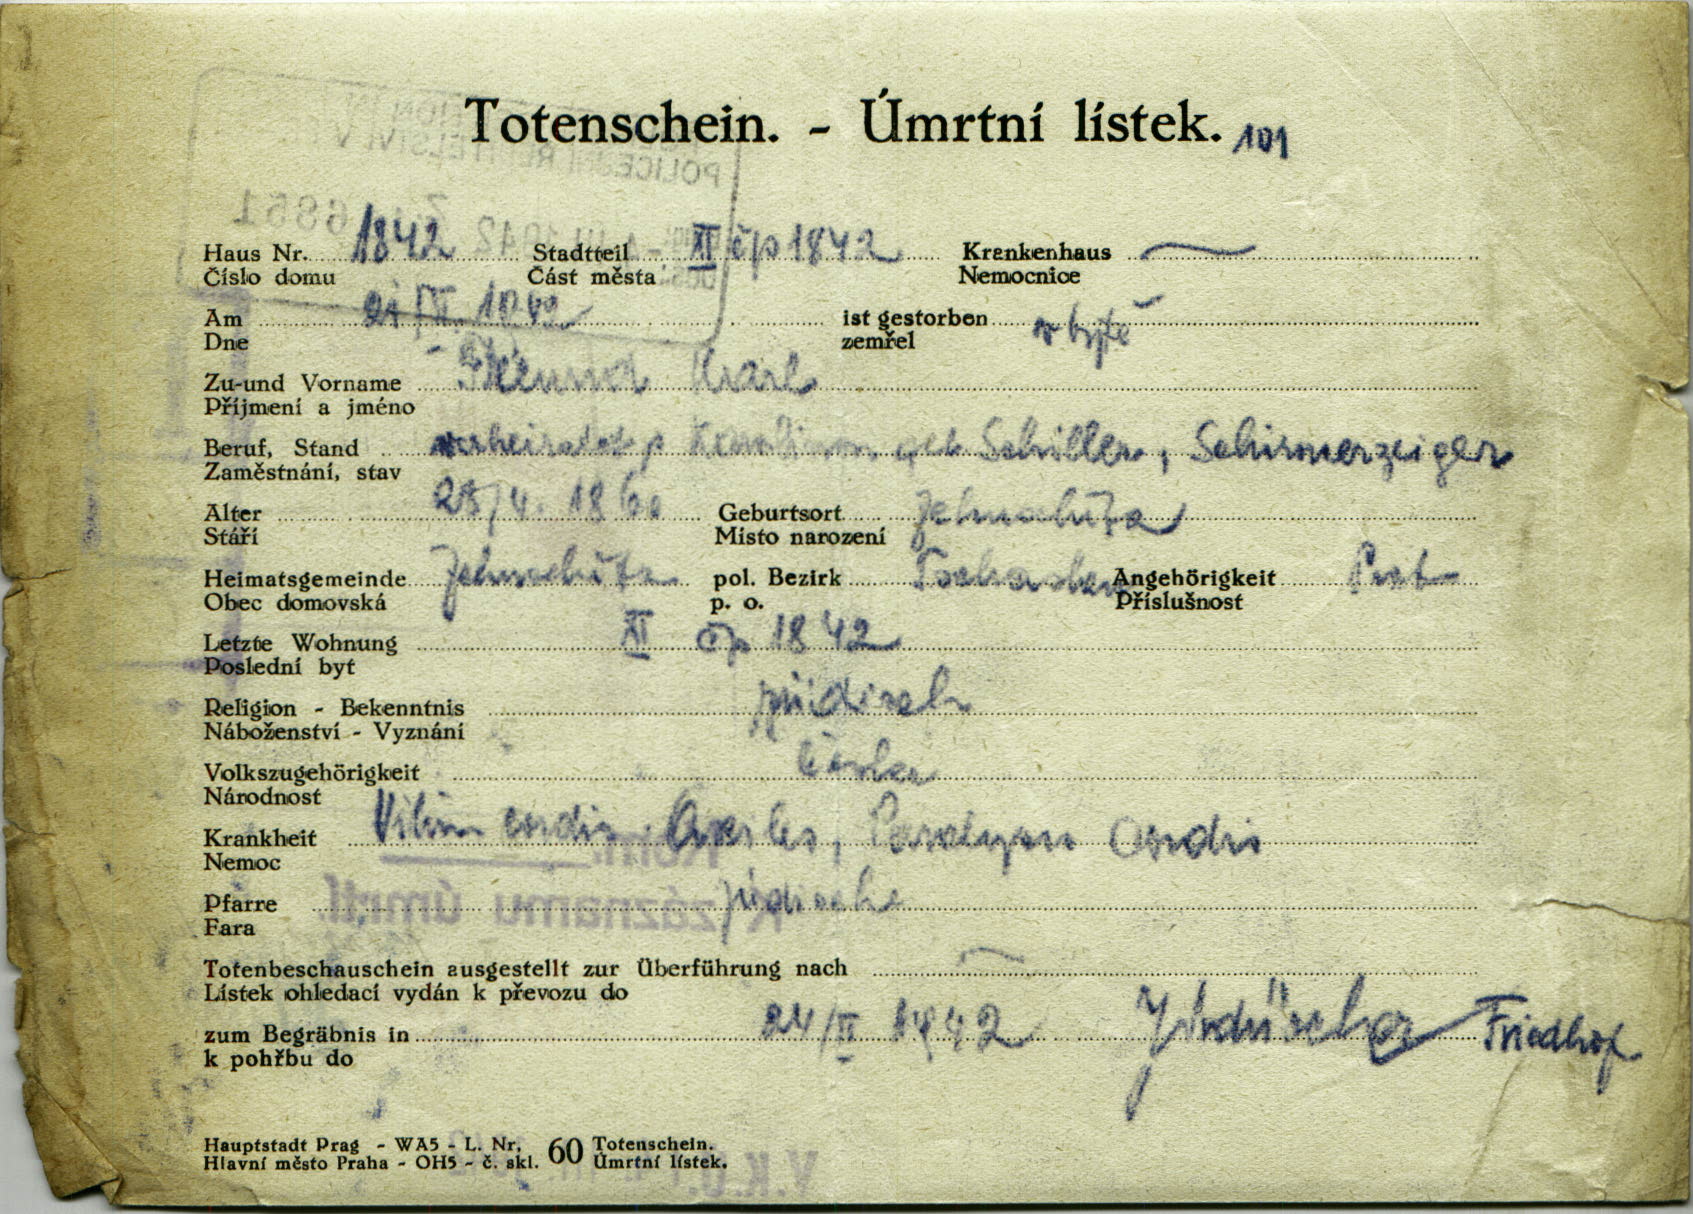 Totenschein. - Úmrtní lístek. 101
Haus Nr. 1842 Stadtteil XI čp 1842 Krankenhaus
Číslo domu Část města Nemocnice
Am 21/II. 1942 ist gestorben v bytě
Dne zemřel
Zu-und Vorname Karl
Příjmení a jméno
Beruf, Stand verheiratet geb Schiller,
Zaměstnání, stav
Alter 25/4. 1860 Geburtsort
Stáří Místo narození
Heimatsgemeinde pol. Bezirk Angehörigkeit Prot
Obec domovská p. o. Příslušnost
Letzte Wohnung XI čp 1842
Poslední byt
Religion - Bekenntnis jüdisch
Náboženství - Vyznání
Volkszugehörigkeit
Národnost
Krankheit Vitium cordis Paralysis Cordis
Nemoc
Pfarre
Fara
Totenbeschauschein ausgestellt zur Überführung nach
Lístek ohledací vydán k převozu do
zum Begräbnis in 24/II 1942 Jüdischer Friedhof
k pohřbu do
Hauptstadt Prag - WA5 - L. Nr. 60 Totenschein.
Hlavní město Praha - OH5 - č. skl. Úmrtní lístek.